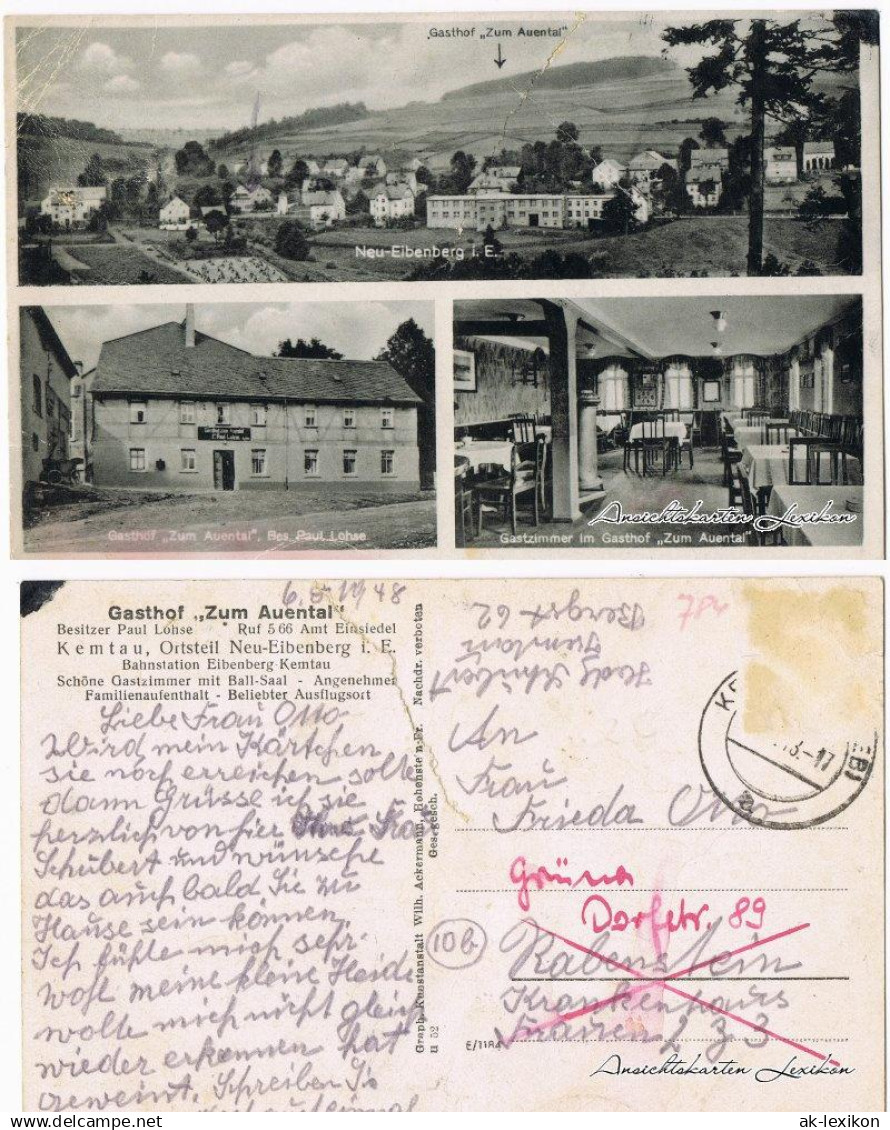 Gasthof „Zum Auental"
Neu-Eibenberg i. E.
Gasthof „Zum Auental", Bes. Paul Lohse
Gastzimmer im Gasthof „Zum Auental"
Ansichtskarten Lexikon
6. 5 1948
Gasthof „Zum Auental"
Besitzer Paul Lohse Ruf 566 Amt Einsiedel
Kemtau, Ortsteil Neu-Eibenberg i. E.
Bahnstation Eibenberg-Kemtau
Schöne Gastzimmer mit Ball-Saal - Angenehmer
Familienaufenthalt - Beliebter Ausflugsort
Liebe Frau Otto
Wird mein Kärtchen
sie noch erreichen sollte
dann Grüsse ich sie
herzlich von hier Frau
Schubert und wünsche
das auch bald Sie zu
Hause sein können
Ich fühle mich sehr
wohl meine kleine Heide
wolte mich nicht gleich
wieder erkennen hat
geweint. Schreiben Sie
Graph. Kunstanstalt Wilh. Ackermann, Hohenstein-Er. Nachdr. verboten
Ges. gesch.
u 52
Schubert
Kemtau
Bergst 62
784
An
Frau
Frieda Otto
Grüna
Dorfstr. 89
10b
Rabenstein
Krankenhaus
Frauen 2 Z 3
E/1184
Ansichtskarten Lexikon
ak-lexikon